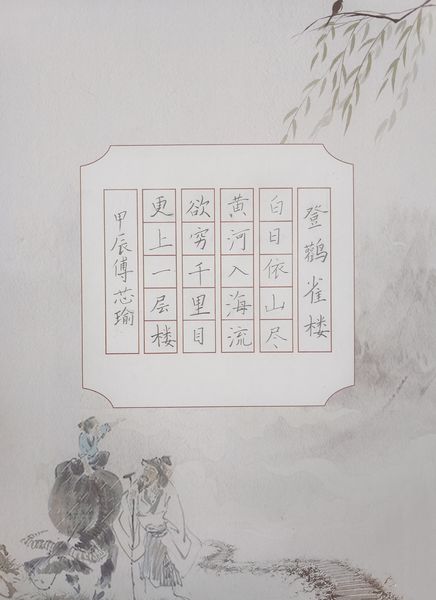 登鹳雀楼
白日依山尽
黄河入海流
欲穷千里目
更上一层楼
甲辰傅芯瑜